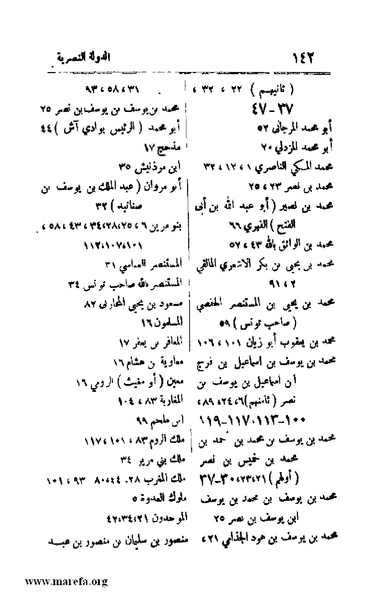 ١٤٢ الدولة النصرية
( ثانيهم ) ٢٢ ، ٣٢ ،
٣٧-٤٧
أبو محمد المرجاني ٥٢
أبو محمد المزدلي ٢٠
محمد المكي الناصري ١ ، ١٢ ، ٣٢
محمد بن نصر ٢٣ ، ٢٥
محمد بن نصير ( أبو عبد الله بن أبى
الفتح ) الفهري ٦٦
محمد بن الواثق بالله ٤٣ ، ٥٧
محمد بن يحيى بن بكر الأشعري المالقي
٢ ، ٩١
محمد بن يحيى بن المستنصر الحفصي
( صاحب تونس ) ٥٩
محمد بن يعقوب أبو زيان ١٠١ ، ١٠٦
محمد بن يوسف بن اسماعيل بن فرج
ابن اسماعيل بن يوسف بن
نصر ( ثامنهم ) ٢٤٦ ، ٨٩ ،
١٠٠-١١٣-١١٧-١١٩
محمد بن يوسف بن محمد بن احمد بن
محمد بن خميس بن نصر
( أولهم ) ٢١ ، ٢٣ ، ٣٠-٣٧
محمد بن يوسف بن محمد بن يوسف
ابن يوسف بن نصر ٢٥
محمد بن يوسف بن هود الجذامي ٢١ ،
٣١ ، ٥٨ ، ٩٣
محمد بن يوسف بن يوسف بن نصر ٢٥
أبو محمد ( الرئيس بوادي آش ) ٤٤
مذحج ١٧
ابن مردنيش ٣٥
أبو مروان ( عبد الملك بن يوسف بن
صنانية ) ٣٢
بنو مرين ٦ ، ٢٥ ، ٢٨ ، ٣٤ ، ٤٣ ، ٥٨ ،
١٠١ ، ١٠٧ ، ١١٢
المستنصر العباسي ٣١
المستنصر بالله صاحب تونس ٣٤
مسعود بن يحيى المحاربي ٨٢
المسلمون ١٦
المعافر بن يعفر ١٧
معاوية بن هشام ١٦
معين ( أو مغيث ) الرومي ١٦
المغاربة ٨٣ ، ١٠٤
ابن ملحم ٩٩
ملك الروم ٨٣ ، ١٠١ ، ١١٧
ملك بني مرين ٣٤
ملك المغرب ٢٨ ، ٤٤ ، ٨٠ ، ٩٣ ، ١٠١
ملوك العدوة ٥
الموحدون ٢١ ، ٣٤ ، ٤٢
منصور بن سليمان بن منصور بن عبد
www.marefa.org